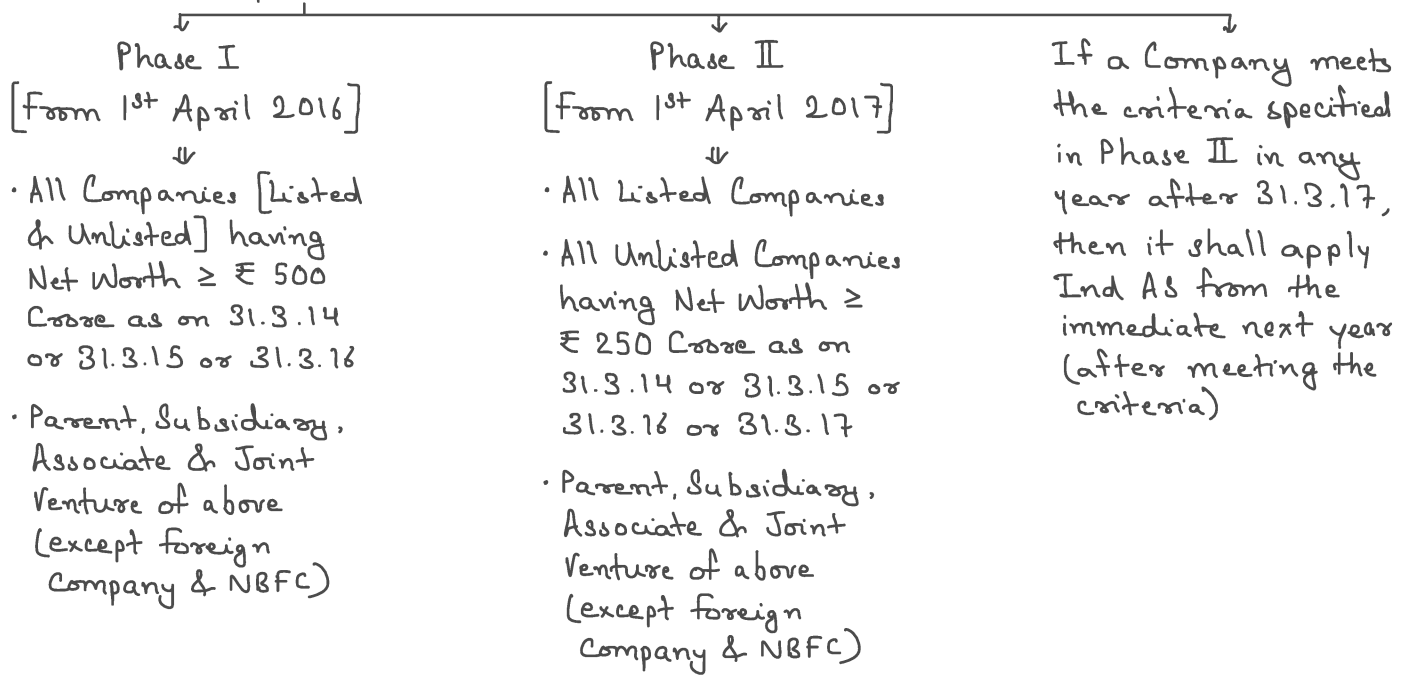 Phase I
[From 1st April 2016]
• All Companies [Listed
& Unlisted] having
Net Worth ≥ ₹ 500
Crore as on 31.3.14
or 31.3.15 or 31.3.16
• Parent, Subsidiary,
Associate & Joint
Venture of above
(except foreign
Company & NBFC)
Phase II
[From 1st April 2017]
• All Listed Companies
• All Unlisted Companies
having Net Worth ≥
₹ 250 Crore as on
31.3.14 or 31.3.15 or
31.3.16 or 31.3.17
• Parent, Subsidiary,
Associate & Joint
Venture of above
(except foreign
Company & NBFC)
If a Company meets
the criteria specified
in Phase II in any
year after 31.3.17,
then it shall apply
Ind AS from the
immediate next year
(after meeting the
criteria)